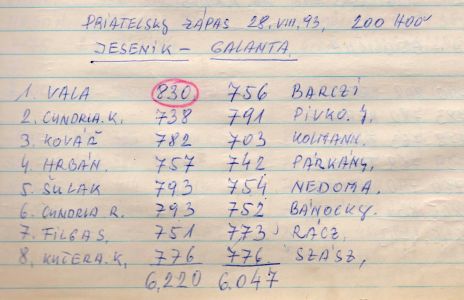 PRIATELSKÝ ZÁPAS 28. VIII. 93, 200 HOOV
JESENÍK – GALANTA.
1. VALA 830 756 BARCZI
2. CUNDRLA. K. 738 791 PIVKO. J.
3. KOVÁŘ 782 703 KOLMANN.
4. HRBÁN. 757 742 PÁRKÁNY,
5. ŠULAK 793 754 NEDOMA.
6. CUNDRLA R. 793 752 BÁNOCKY.
7. FILGAS, 751 773 RÁCZ,
8. KUČERA. K, 776 776 SZÁSZ,
6.220 6.047